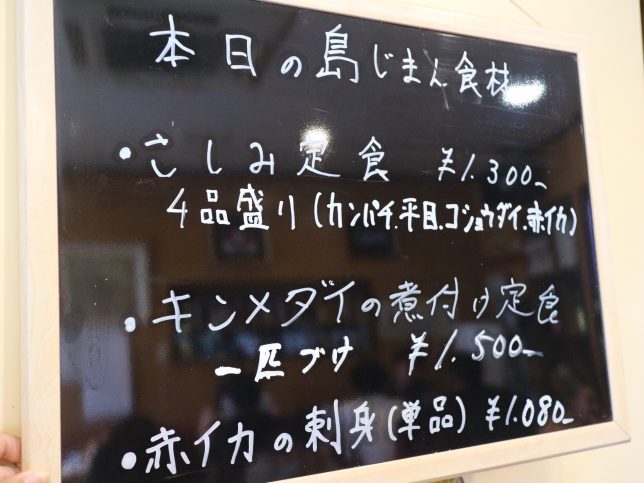 本日の島じまん食材
・さしみ定食 ¥1.300-
4品盛り(カンパチ.平目.コショウダイ.赤イカ)
・キンメダイの煮付け定食
一匹づけ ¥1.500-
・赤イカの刺身(単品) ¥1.080-